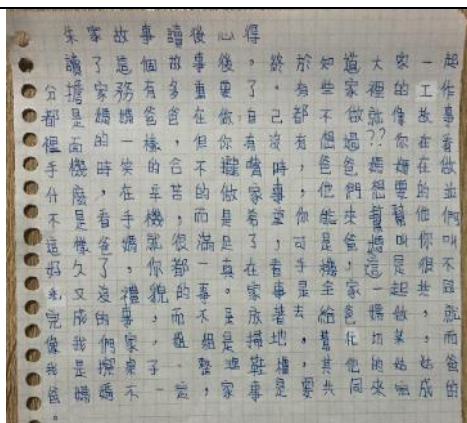 朱家故事讀後心得
讀了這個故事後，終於知道大家一起
分擔家務有多重要了。有些家裡的工作
都是媽媽爸爸在做自己都不做就像故事
裡面的一樣，但你有沒有想過??你在在看
手機時笑的合不攏嘴時，爸爸媽媽在做
什麼，在辛苦的做家事，他們想要的並
不是看手機，而是希望你能來幫幫他們
這樣爸媽就很滿足了，可是爸媽叫你叫
好久了，你都一直在看手機，這是很不
又沒禮貌的事。家事是全家一起共
完成的事，而不是放著去給爸媽做，就
像我們家，姐姐是掃地，幫忙切菜，而
我是擦桌子、整理鞋櫃，其他的姑姑爸
爸媽媽不一定，家事是要共同來完成的
。